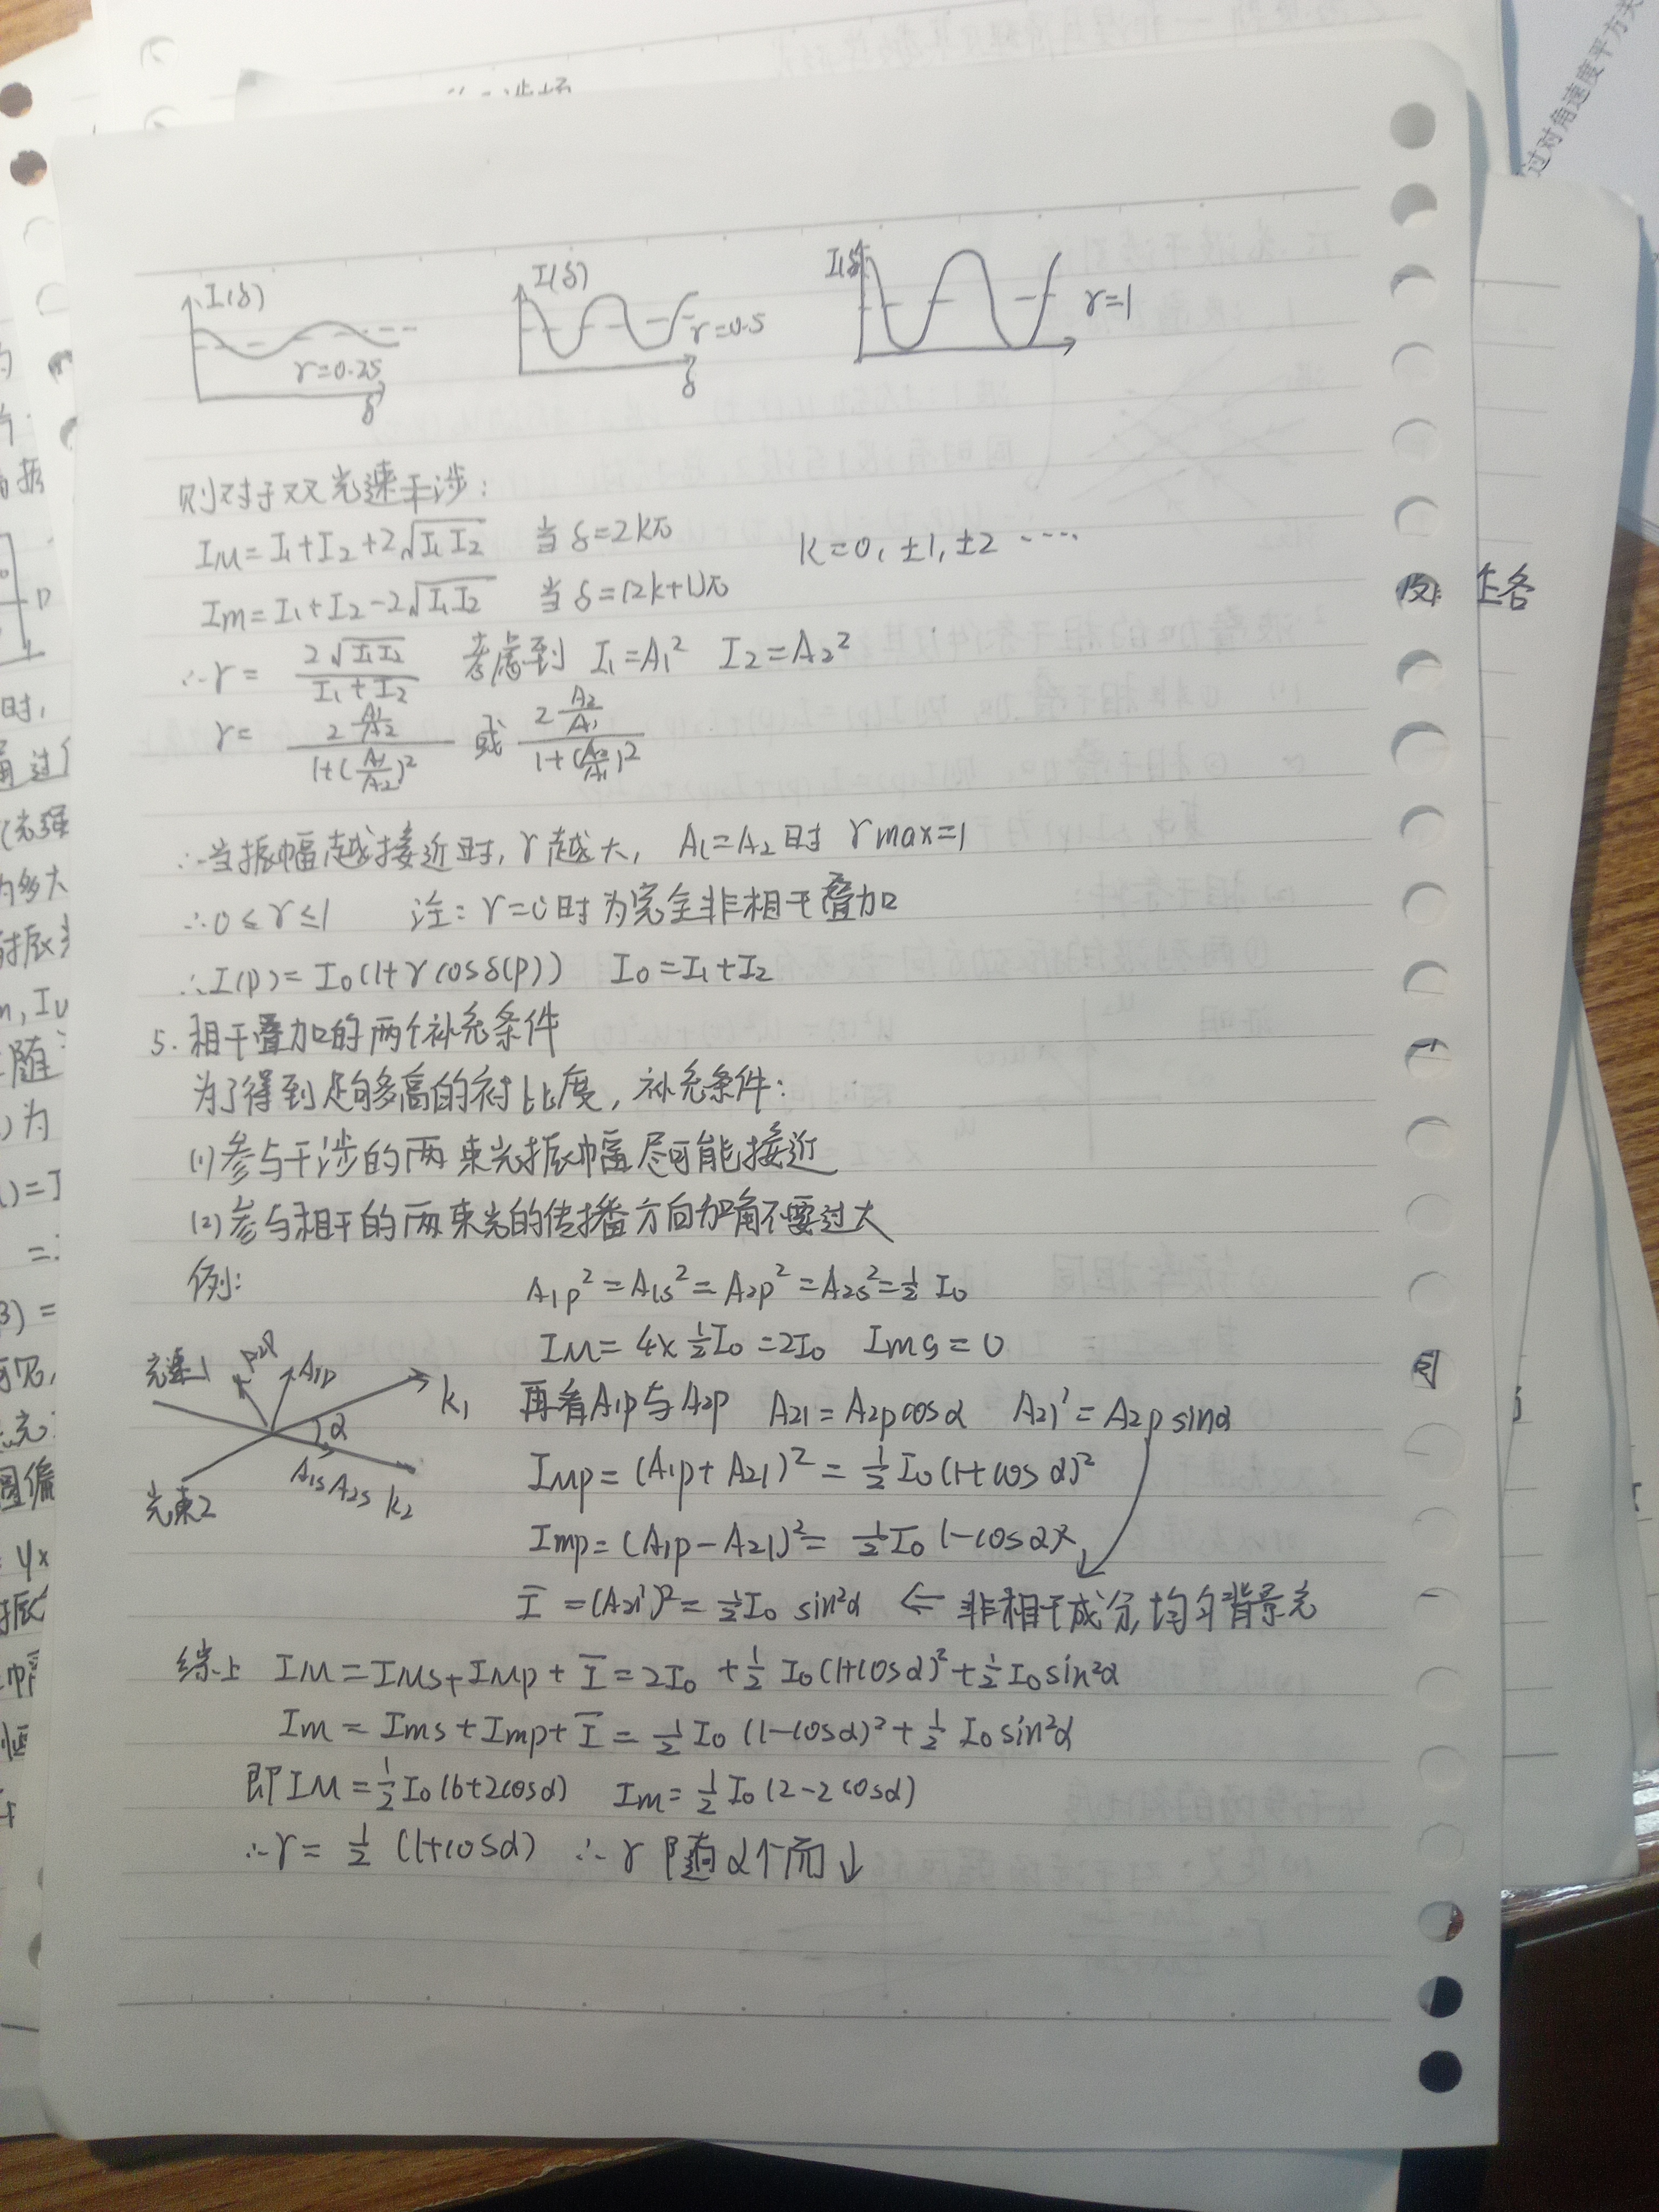 过对角速度平方关
I(δ) I(δ) I(δ)
γ=0.25 γ=0.5 γ=1
δ δ
则对于双光速干涉:
I_M=I₁+I₂+2√(I₁I₂) 当δ=2kπ k=0,±1,±2 ····
Im=I₁+I₂-2√(I₁I₂) 当δ=(2k+1)π
∴γ= 2√(I₁I₂)/(I₁+I₂) 考虑到 I₁=A₁² I₂=A₂²
γ= 2(A₁/A₂)/(1+(A₁/A₂)²) 或 2(A₂/A₁)/(1+(A₂/A₁)²)
∴当振幅越接近时, γ越大, A₁=A₂时 γmax=1
∴0≤γ≤1 注: γ=0时为完全非相干叠加
∴I(p)=I₀(1+γcosδ(p)) I₀=I₁+I₂
5. 相干叠加的两个补充条件
为了得到足够多高的衬比度, 补充条件:
(1)参与干涉的两束光振幅尽可能接近
(2)参与相干的两束光的传播方向夹角不要过大
例:
A₁p²=A₁s²=A₂p²=A₂s²=½I₀
I_M=4×½I₀=2I₀ Ims=0
光速1 A₂p A₁p k₁
α
A₁s A₂s k₂
光束2
再看A₁p与A₂p A₂₁=A₂pcosα A₂₁'=A₂psinα
I_Mp=(A₁p+A₂₁)²=½I₀(1+cosα)²
Imp=(A₁p-A₂₁)²=½I₀(1-cosα)²
Ī=(A₂₁')²=½I₀sin²α ⇐ 非相干成分,均匀背景光
综上 I_M=I_Ms+I_Mp+Ī=2I₀+½I₀(1+cosα)²+½I₀sin²α
Im=Ims+Imp+Ī=½I₀(1-cosα)²+½I₀sin²α
即I_M=½I₀(6+2cosα) Im=½I₀(2-2cosα)
∴γ=½(1+cosα) ∴γ随α↑而↓